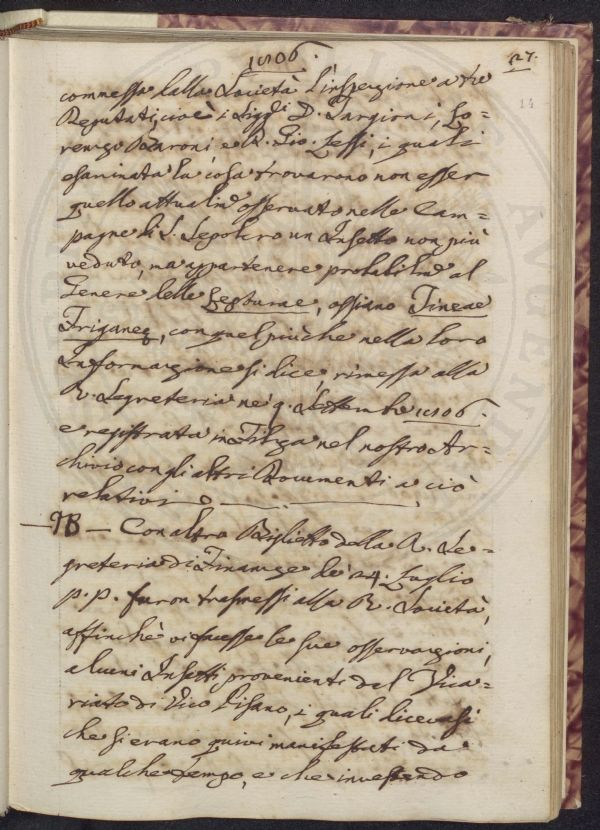 1806.
27.
14
commessa dalla Società l'inspezione a tre
Deputati, cioè i Sigg.ri D. Targioni, Lo=
renzo Baroni e D. Gio. Lessi, i quali
esaminata la cosa trovarono non esser
quello attualm.e osservato nelle Cam=
pagne di S. Sepolcro un Insetto non più
veduto, ma appartenere probabilm.e al
Genere delle Lepturae, ossiano Tineae
Friganee, con quel più che nella loro
Informazione si dice, rimessa alla
R. Segreteria ne' 9. Settembre 1806.
e registrata in Filza nel nostro Ar=
chivio con gli altri Documenti a ciò
relativi
— Con altro Biglietto della R. Se=
greteria di Finanze de' 24. Luglio
p.p. furon trasmessi alla R. Società,
affinchè vi facesse le sue osservazioni,
alcuni Insetti provenienti dal Vica=
riato di Vico Pisano, i quali dicevasi
che si erano quivi manifestati da
qualche Tempo, e che investendo